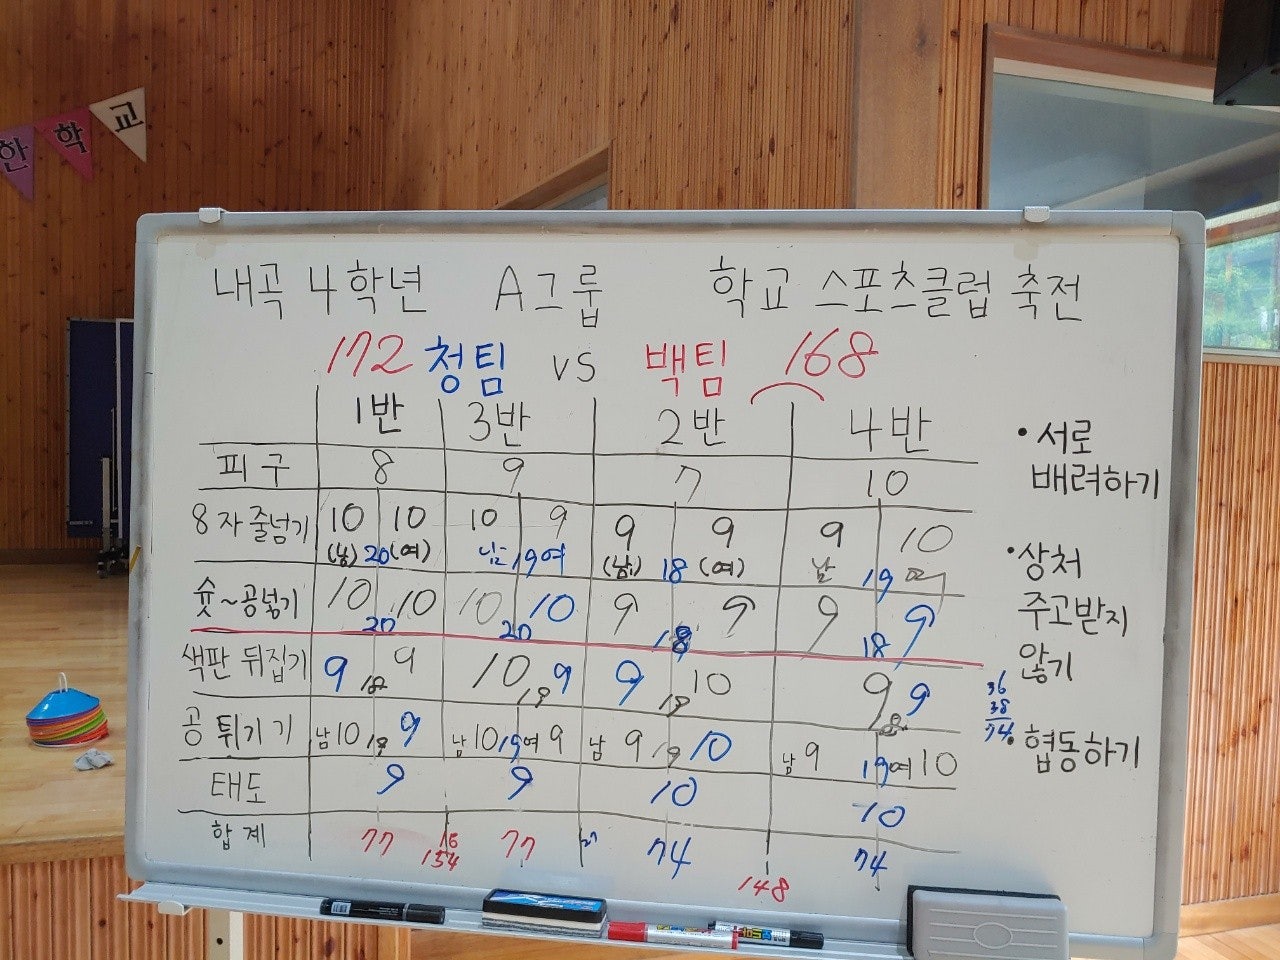 한 학 교
내곡 4학년 A그룹 학교 스포츠클럽 축전
172 청팀 vs 백팀 168
1반 3반 2반 4반
피구 8 9 7 10
8자 줄넘기 10 10 10 9 9 9 9 10
(남) 20 (여) 남 19 여 (남) 18 (여) 남 19 여
슛~공넣기 10 10 10 10 9 9 9 9
20 20 18 18
색판 뒤집기 9 18 9 10 19 9 9 19 10 9 9
공 튀기기 남 10 19 9 남 10 19 여 9 남 9 19 10 남 9 19 여 10
태도 9 9 10 10
합계 77 77 74 74
154 148
• 서로
배려하기
• 상처
주고받지
않기
• 협동하기
36
38
74